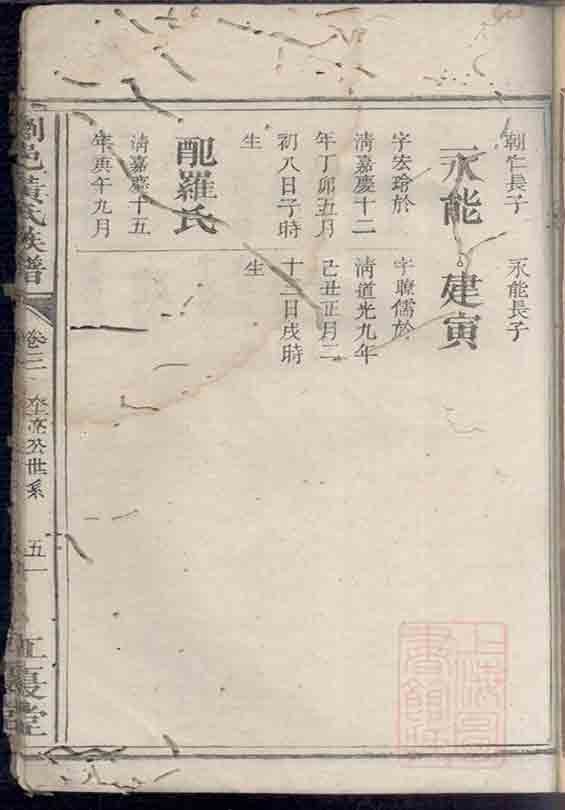 朝仁長子
永能
字宏玲於
清嘉慶十二
年丁卯五月
初八日子時
生
配羅氏
清嘉慶十五
年庚午九月
永能長子
建寅
字暸儒於
清道光九年
己丑正月二
十二日戌時
生
瀏邑黃氏族譜
卷二
奎亮公世系
五一
江夏堂
上海圖
書館藏